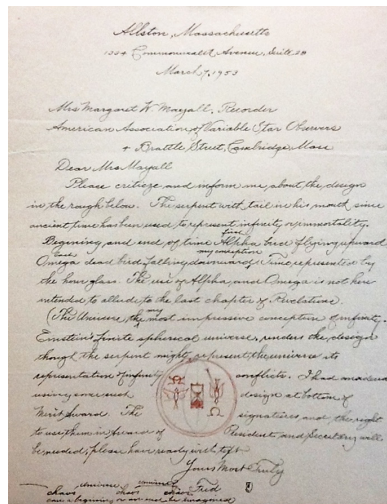 Allston, Massachusetts
1254 Commonwealth Avenue, Suite 28
March 7, 1953
Mrs Margaret W Mayall, Recorder
American Association of Variable Star Observers
4 Brattle Street, Cambridge, Mass
Dear Mrs Mayall
Please criticize, and inform me, about the design
in the rough below. The serpent with tail in his mouth since
ancient time has been used to represent infinity, or immortality.
Beginning, and end, of time Alpha bird flying upward
Omega dead bird falling downward. Time, represented by
the hour glass. The use of Alpha, and Omega is not here
intended to allude to the last chapter of Revelation.
(The Universe, the most impressive conception of infinity.
Einstein's finite spherical universe, renders the design
though the serpent might represent the universe as
representation of infinity conflicts. I had an idea
using over such design at bottom of
Merit Award. The signatures and the right
to use them, in favor of President, and Secretary, will
be needed; please have ready
Yours Most Truly
universe
chaos chaos chaos Fred
can a beginning or